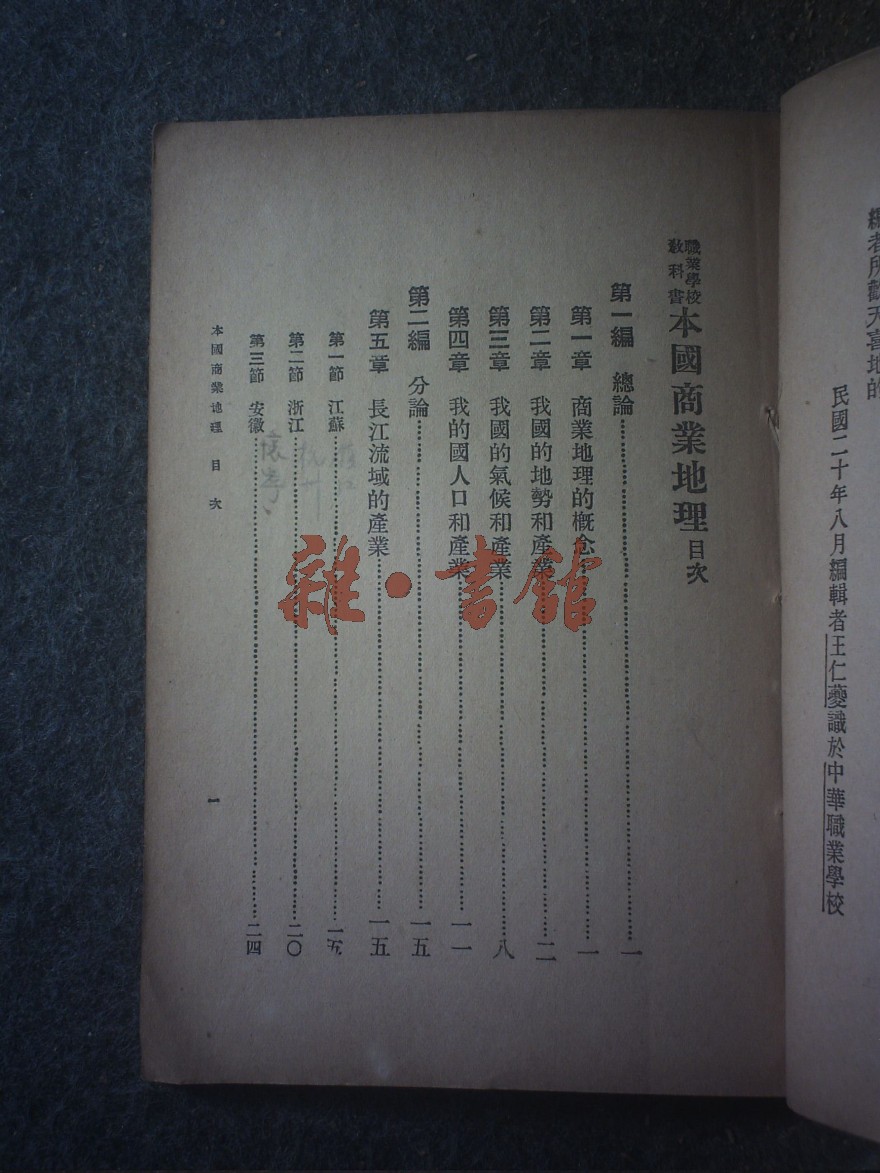 編者所歡天喜地的
民國二十年八月編輯者王仁夔識於中華職業學校
職業學校
教科書
本國商業地理目次
第一編 總論……一
第一章 商業地理的概念……一
第二章 我國的地勢和產業……二
第三章 我國的氣候和產業……八
第四章 我的國人口和產業……一一
第二編 分論……一五
第五章 長江流域的產業……一五
第一節 江蘇……一五
第二節 浙江……二〇
第三節 安徽……二四
懷寧
本國商業地理 目次
一
雜·書館